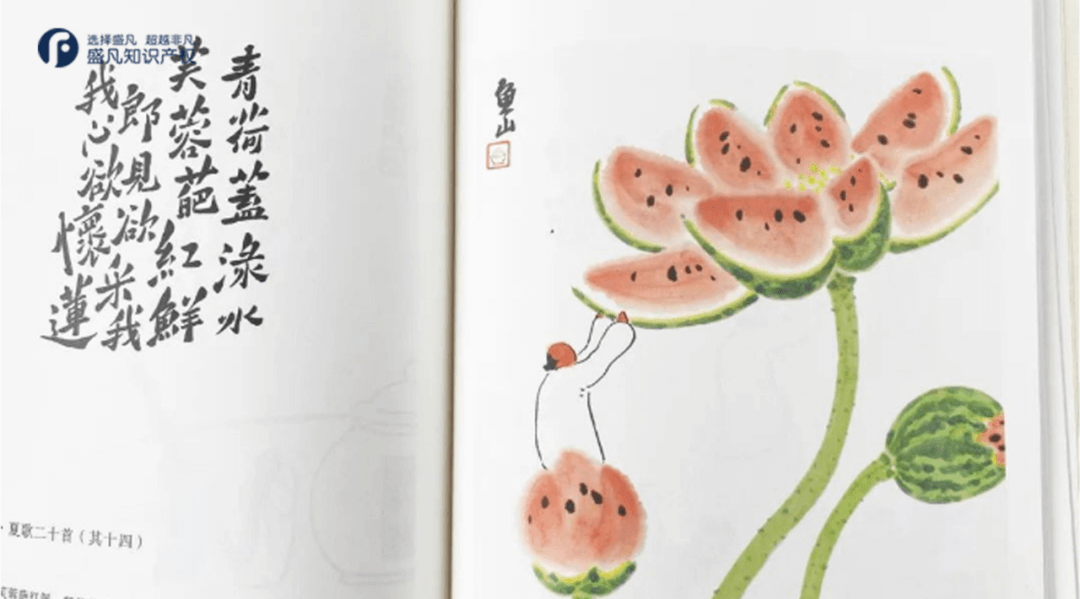 选择盛凡 超越非凡
盛凡知识产权
青荷蓋淥水
芙蓉葩紅鮮
郎見欲采我
我心欲懷蓮
·夏歌二十首（其十四）
魚山